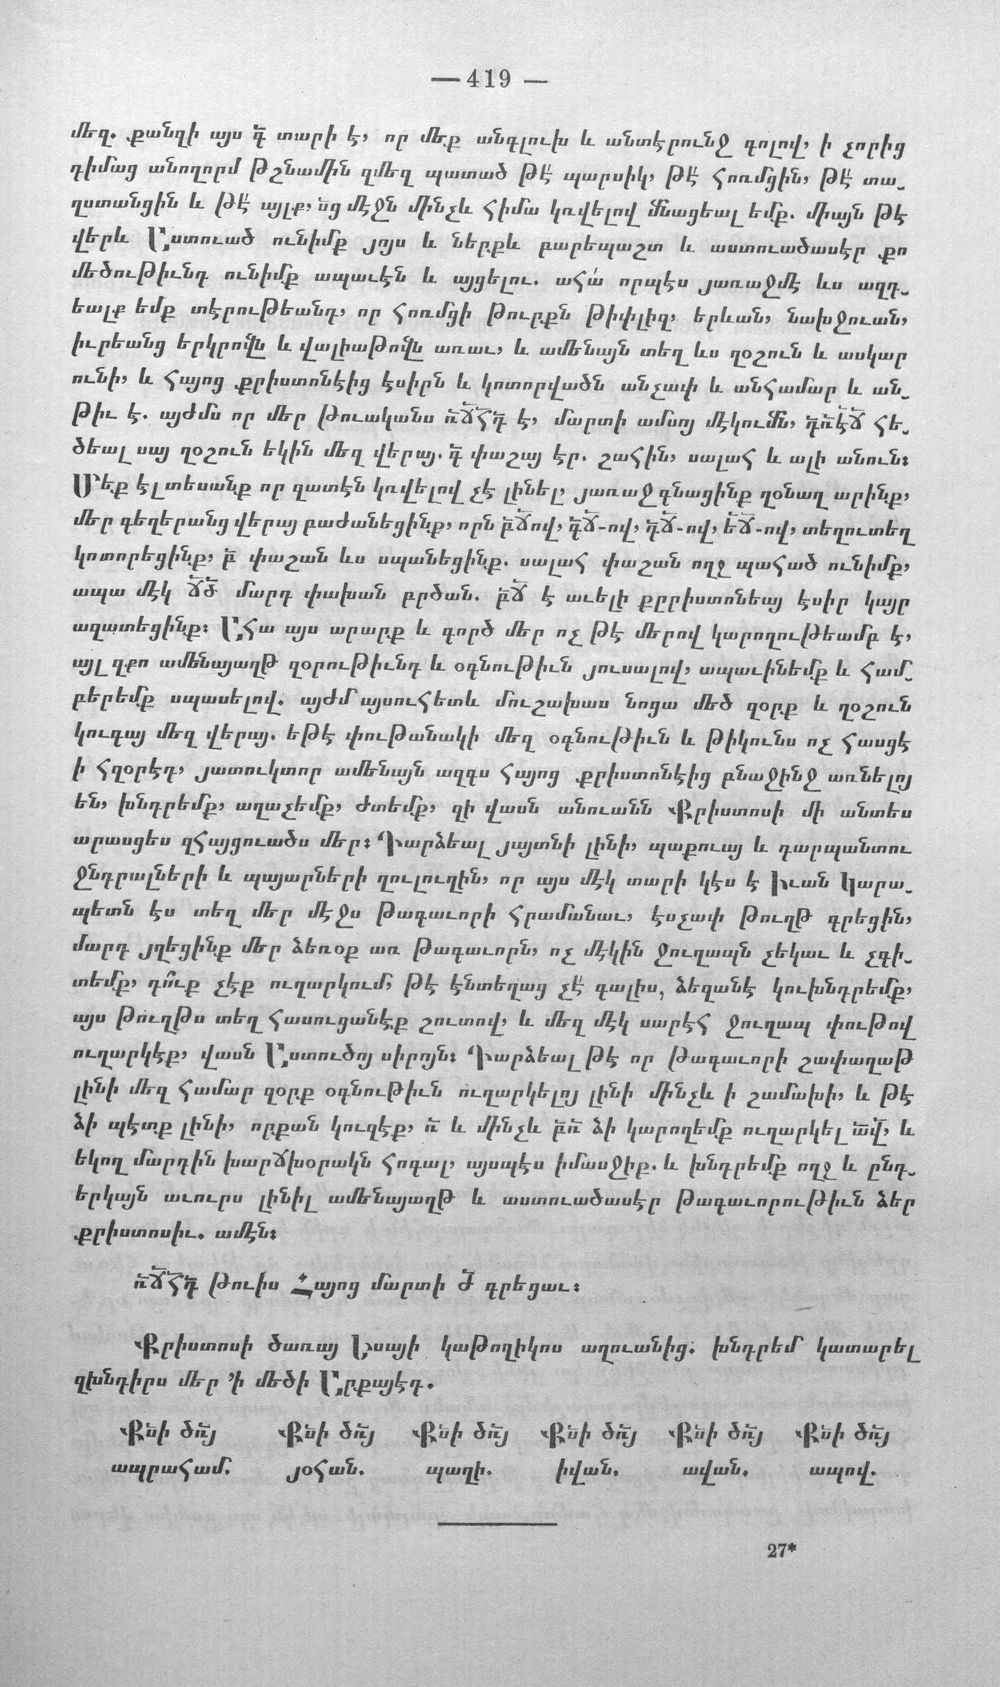 — 419 —
մեզ. քանզի այս դ̄ տարի է, որ մեք անգլուխ և անտէրունջ գոլով, ի չորից
դիմաց անողորմ թշնամին զմեզ պատած թէ՛ պարսիկ, թէ՛ հոռմցին, թէ՛ տա֊
ղստանցին և թէ՛ այլք, ն̄ց մէջն մինչև հիմա կռվելով մնացեալ եմք. միայն թէ
վերև Աստուած ունիմք յոյս և ներքև բարեպաշտ և աստուածասէր քո
մեծութիւնդ ունիմք ապաւէն և այցելու. ահա՛ որպէս յառաջմէ ևս ազդ֊
եալք եմք տէրութեանդ, որ հոռմցի թուրքն թիփլիզ, երևան, նախջուան,
իւրեանց երկրովն և վալիաթովն առաւ, և ամենայն տեղ ևս ղօշուն և ասկար
ունի, և հայոց քրիստոնէից էսիրն և կոտորվածն անչափ և անհամար և ան֊
թիւ է. այժմս որ մեր թուականս ռ̄ճ̄հ̄դ̄ է, մարտի ամսոյ մէկումն, դ̄ռ̄է̄ճ̄ հե֊
ծեալ սայ ղօշուն եկին մեզ վերայ. դ̄ փաշայ էր. շահին, սալահ և ալի անուն։
Մեք էլ տեսանք որ զատէն կռվելով չէ լինել, յառաջ գնացինք ղօնաղ արինք,
մեր գեղերանց վերայ բաժանեցինք, որն բ̄ճ̄ով, դ̄ճ̄-ով, դ̄ճ̄-ով, ե̄ճ̄-ով, տեղուտեղ
կոտորեցինք, բ̄ փաշան ևս սպանեցինք. սալահ փաշան ողջ պահած ունիմք,
ապա մէկ ճ̄ծ̄ մարդ փախան բրծան. բ̄ճ̄ է աւելի քըրիստոնեայ էսիր կայր
ազատեցինք։ Ահա այս արարք և գործ մեր ոչ թէ մերով կարողութեամբ է,
այլ զքո ամենայաղթ զօրութիւնդ և օգնութիւն յուսալով, ապաւինեմք և համ֊
բերեմք սպասելով. այժմ այսուհետև մուշախաս նոցա մեծ զօրք և ղօշուն
կուգայ մեզ վերայ. եթէ փութանակի մեզ օգնութիւն և թիկունս ոչ հասցէ
ի հզօրէդ, յատուկտոր ամենայն ազգս հայոց քրիստոնէից բնաջինջ առնելոյ
են, խնդրեմք, աղաչեմք, ժտեմք, զի վասն անուանն Քրիստոսի մի անտես
արասցես զհայցուածս մեր։ Դարձեալ յայտնի լինի, պաքուայ և դարպանտու
ջնդրալների և պայարների ղուլուղին, որ այս մէկ տարի կէս է Իւան Կարա֊
պետն էս տեղ մեր մէջս թագաւորի հրամանաւ, էսչափ թուղթ գրեցին,
մարդ յղեցինք մեր ձեռօք առ թագաւորն, ոչ մէկին ջուղապն չեկաւ և չգի֊
տեմք, դո՞ւք չէք ուղարկում, թէ էնտեղաց չէ՛ գալիս, ձեզանէ կուխնդրեմք,
այս թուղթս տեղ հասուցանէք շուտով, և մեզ մէկ սարէհ ջուղապ փութով
ուղարկէք, վասն Աստուծոյ սիրոյն։ Դարձեալ թէ որ թագաւորի շափաղաթ
լինի մեզ համար զօրք օգնութիւն ուղարկելոյ լինի մինչև ի շամախի, և թէ
ձի պէտք լինի, որքան կուզէք, ռ̄ և մինչև բ̄ռ̄ ձի կարողեմք ուղարկել ա̄վ, և
եկող մարդին խարճխօրակն հոգալ, այսպէս իմասջիք. և խնդրեմք ողջ և ընդ֊
երկայն աւուրս լինիլ ամենայաղթ և աստուածասէր թագաւորութիւն ձեր
քրիստոսիւ. ամէն։
ռ̄ճ̄հ̄դ̄ թուիս Հայոց մարտի ժ̄ գրեցաւ։
Քրիստոսի ծառայ Եսայի կաթողիկոս աղուանից. խնդրեմ կատարել
զխնդիրս մեր ’ի մեծի Արքայէդ.
Քն̄ի ծռ̄յ Քն̄ի ծռ̄յ Քն̄ի ծռ̄յ Քն̄ի ծռ̄յ Քն̄ի ծռ̄յ Քն̄ի ծռ̄յ
ապրահամ. յօհան. պաղի. իվան. ավան. ապով.
27*